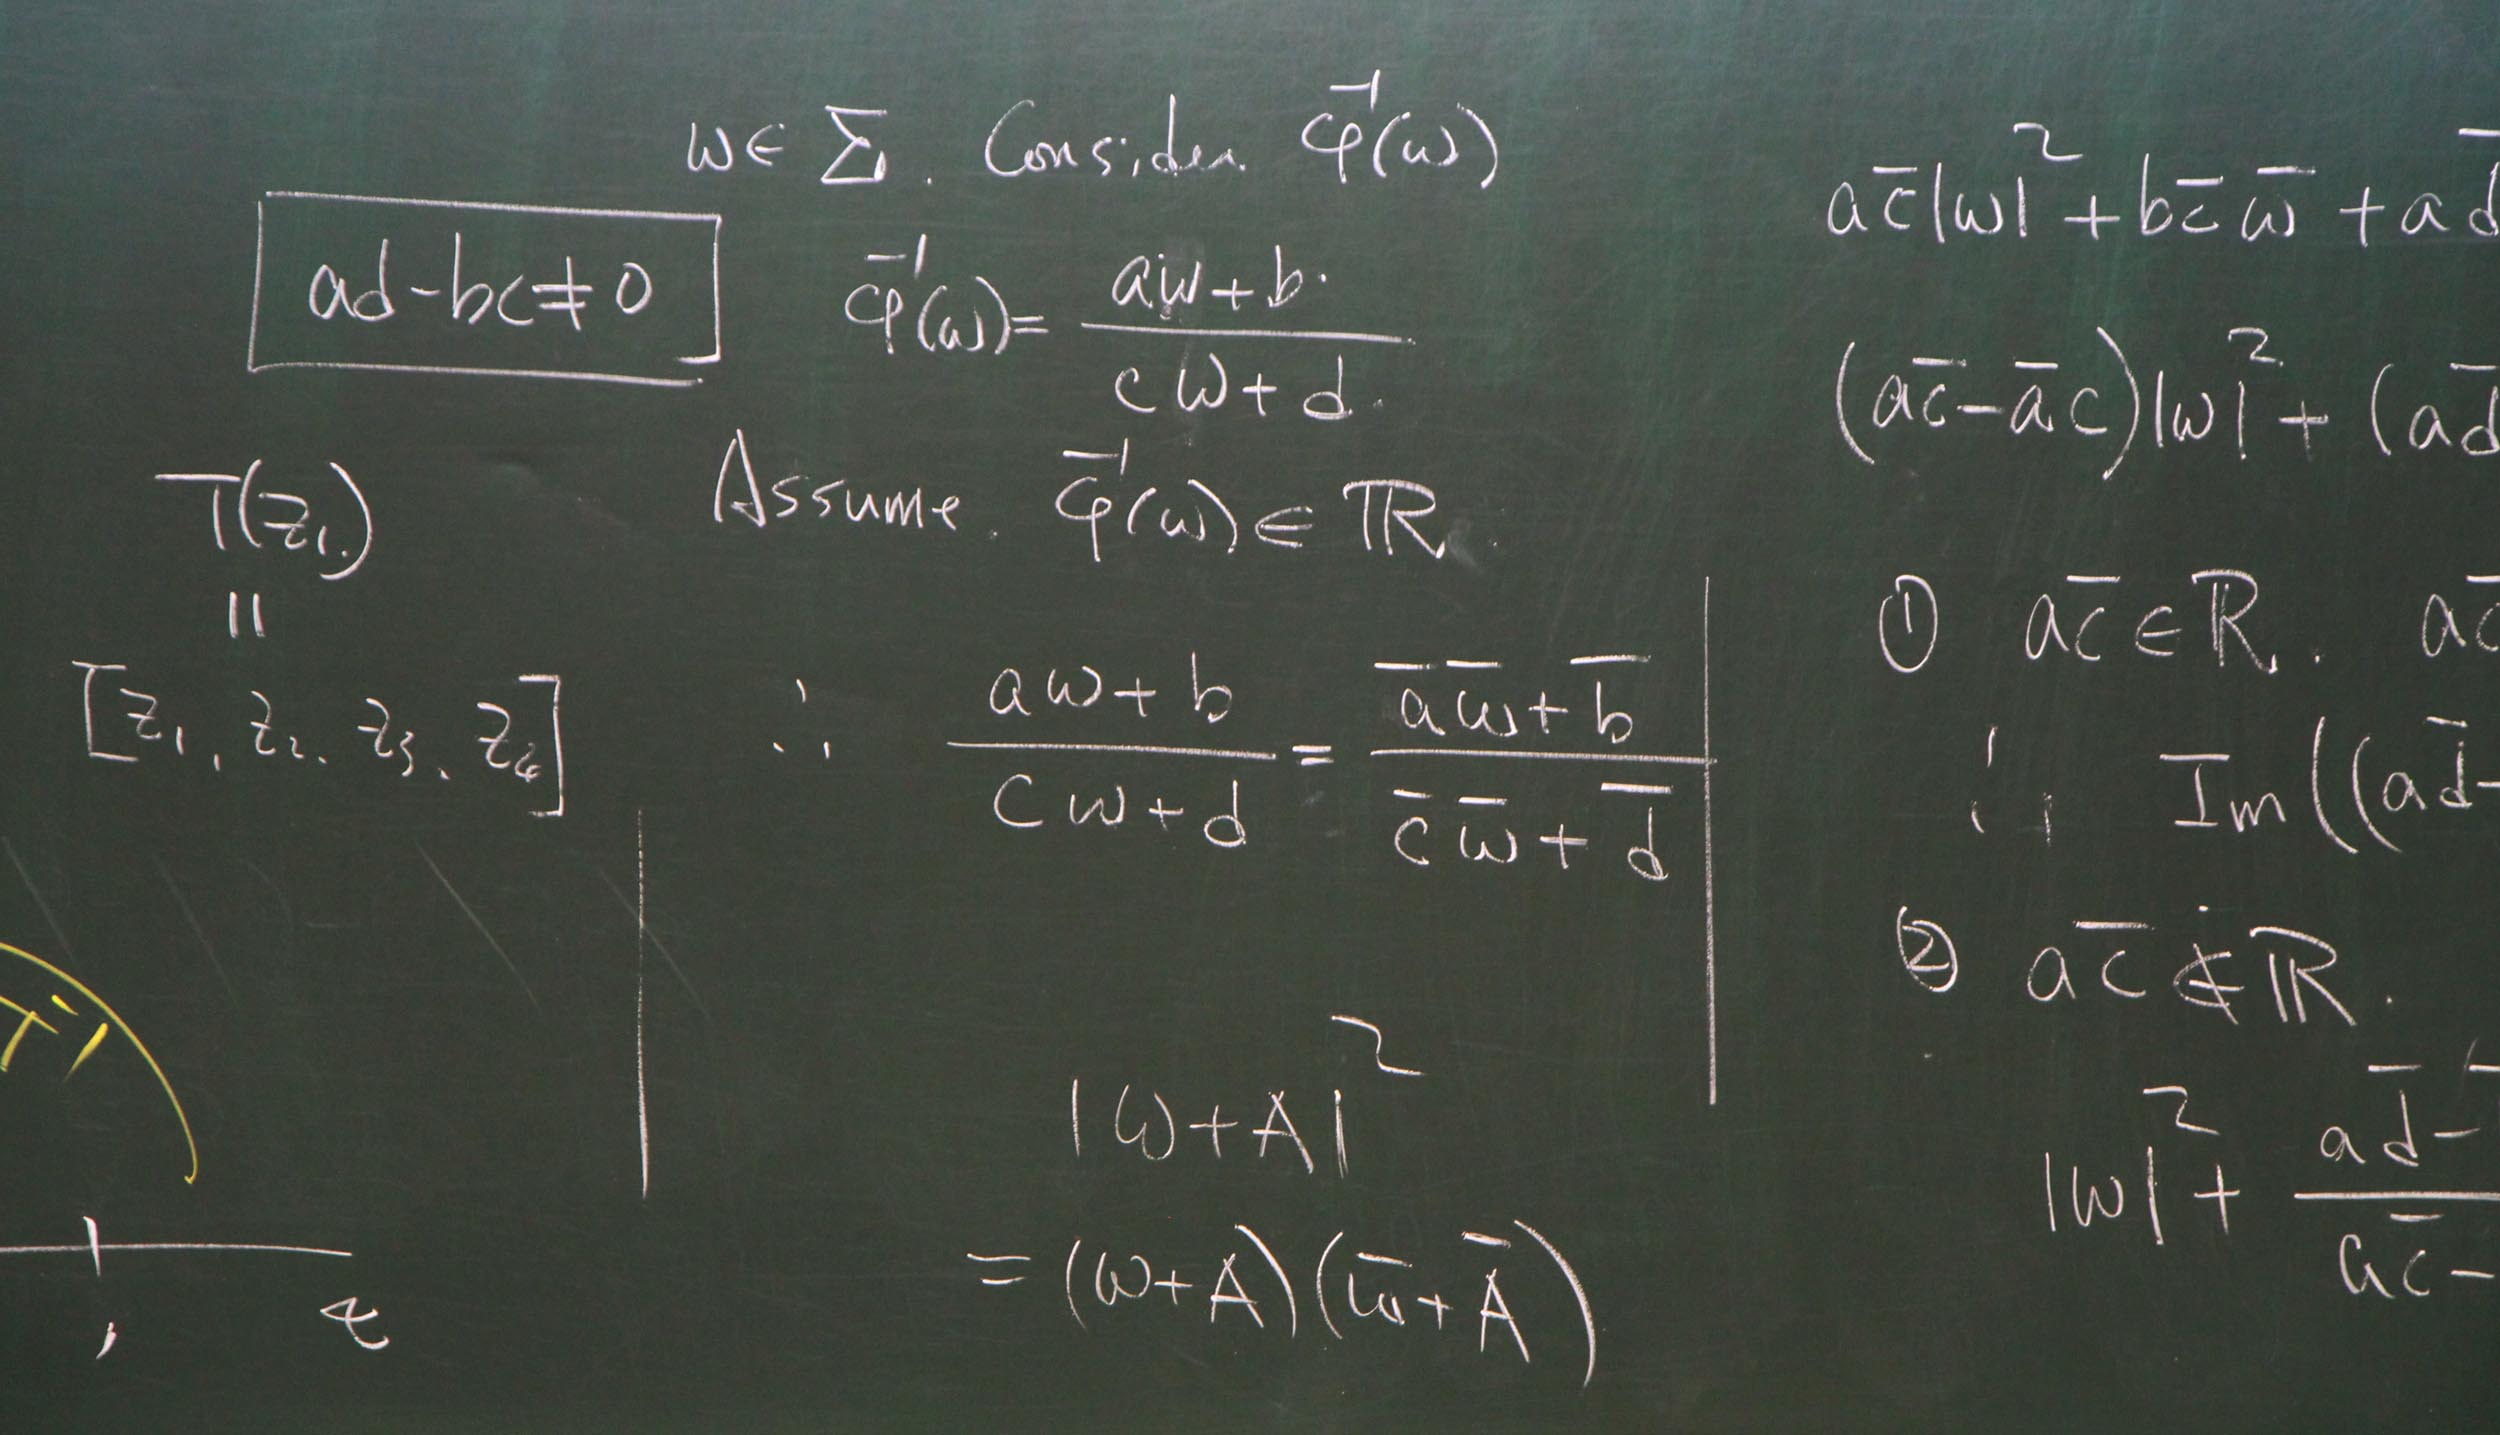 ad-bc≠0
T(z₁.)
=
[z₁, z₂. z₃. z₄]
T⁻¹
1
w∈Σ. Consider φ⁻¹(w)
φ⁻¹(w)= (aw+b)/(cw+d)
Assume. φ⁻¹(w)∈ℝ.
∴ (aw+b)/(cw+d) = (a̅w̅+b̅)/(c̅w̅+d̅)
|w+A|²
=(w+A)(w̅+A̅)
ac̅|w|²+bc̅w̅+ad̅
(ac̅-a̅c)|w|²+(ad̅
① ac̅∈ℝ. ac̅
∴ Im((ad̅-
② ac̅∉ℝ.
|w|²+ (ad̅-)/(ac̅-)